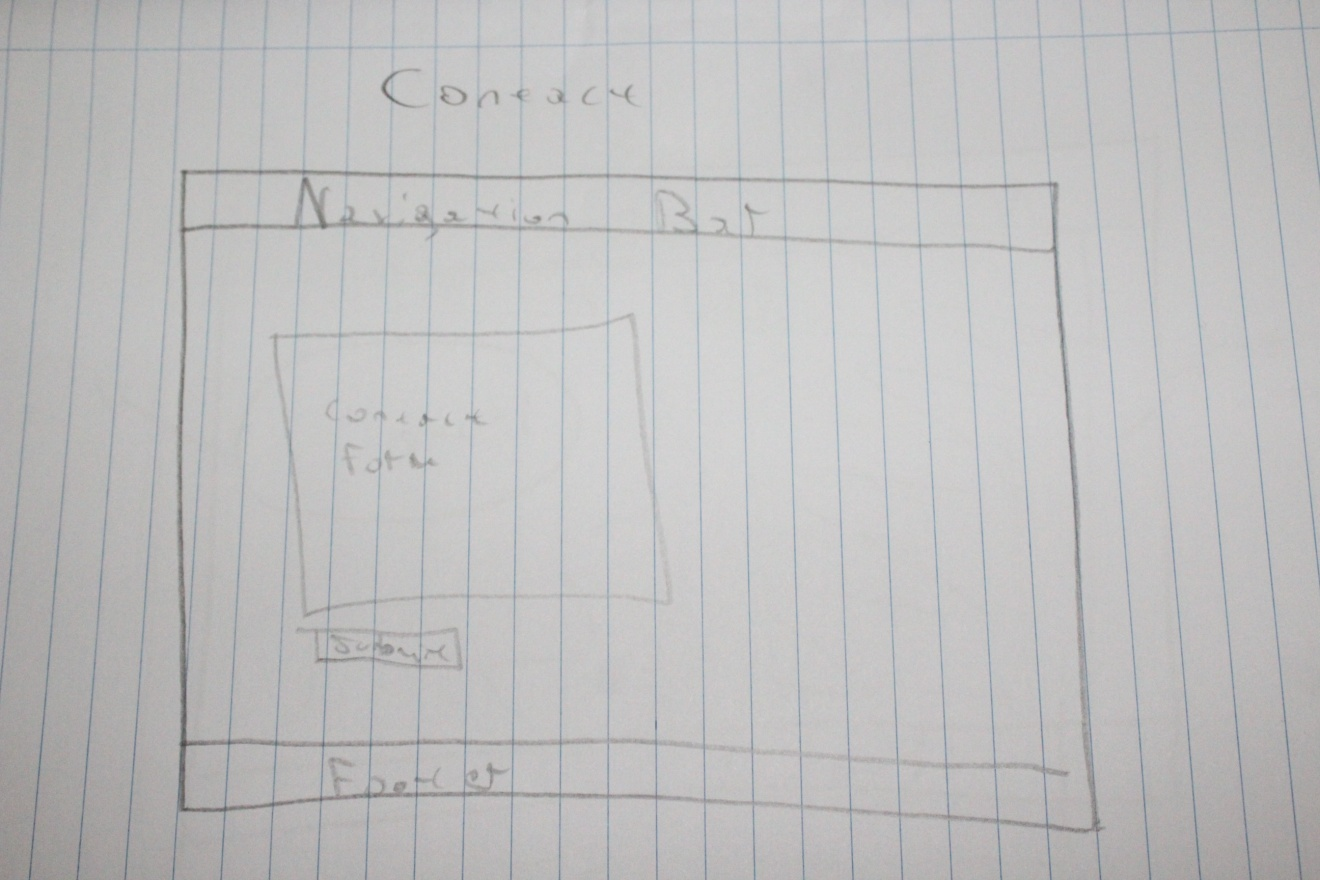 Contact
Navigation Bar
Contact
Form
Submit
Footer